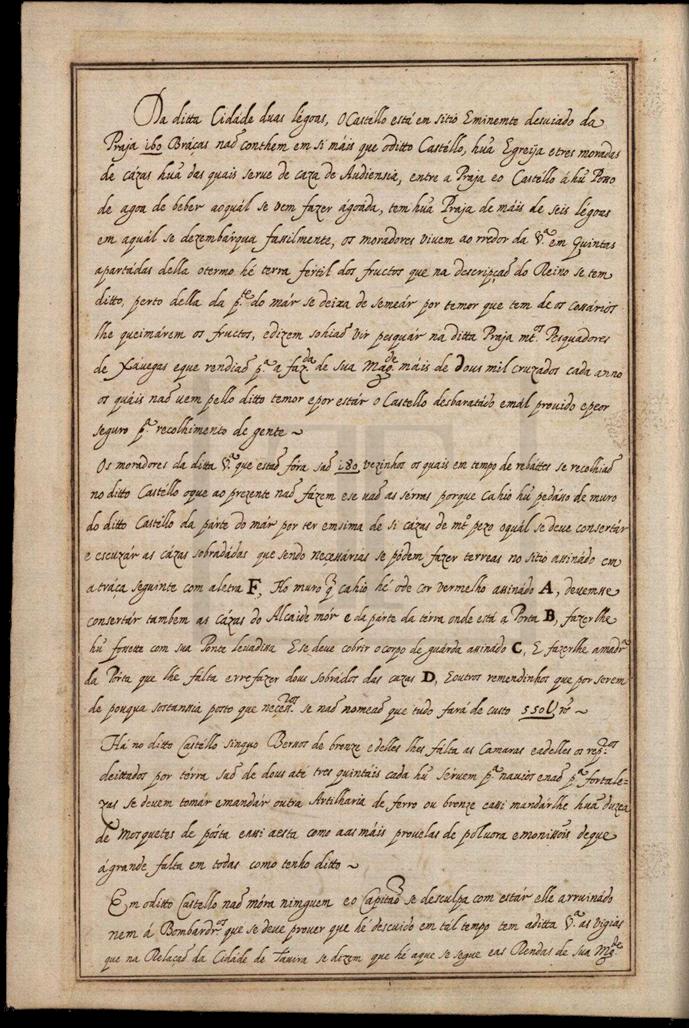 Da ditta Cidade duas légoas, O Castéllo está en sitio Eminemte desuiado da
Praja 160 Bráças naõ conthem em si máis que o ditto Castéllo, huã Egreija e tres moradas
de cázas huã das quais serue de caza de Audiensia, entre a Praja e o Castéllo á hũ Posso
de agoa de beber ao quál se vem fazer ágoada, tem huã Praja de máis de seis légoas
em a quál se dezembárqua fassilmente, os moradores viuem ao rredor da Vª em Quintas
apartádas della o termo hé terra fertil dos fructos que na descripçaõ do Reino se tem
ditto, perto della da pte do már se deixa de semeár por temor que tem de os cossários
lhe queimárem os fructos, e dizem sohiaõ vir pesquár na ditta Praja mtos Pesquadores
de Xáuegas e que rendiaõ pª a fazda de sua Magde máis de Dous mil cruzados cada anno
os quáis naõ vem pello ditto temor e por estár o Castello desbaratádo e mál prouido e peor
seguro pª recolhimento de gente ~
Os moradores de ditta Vª que estaõ fóra saõ 180 vezinhos os quais em tempo de rebáttes se recolhiaõ
no ditto Castéllo o que ao prezente naõ fázem e se vaõ as sérras porque cahio hũ pedásso de muro
do ditto Castéllo da párte do már por ter em sima de si cázas de mto pezo o quál se deue consertár
e escuzár as cázas sobradádas que sendo necessárias se pódem fazer terreas no sitio assinádo em
a tráça seguinte com a letra F, Ho muro q̃ cahio hé o de cor vermelho assinádo A, deuemse
consertár tambem as cázas do Alcaide mór e da párte da térra onde está a Porta B, fazerlhe
hũ fosseto com sua Ponte leuadissa E se deue cobrir o corpo de guárda assinado C, E fazerlhe a madrª
da Pórta que lhe fálta e rrefazer dous sobrádos das cazas D, E outros remendinhos que por serem
de pouqua sostansia posto que necesros se naõ nomeaõ que tudo fará de custo 550U rs ~
Há no ditto Castéllo sinquo Bersos de bronze e delles lhes fálta as Camaras e a delles os repros
deittados por térra saõ de dous até tres quintáis cada hũ séruem pª nauios e naõ pª fortale=
zas se deuem tomár e mandár outra Artilharia de ferro ou bronze e assi mandárlhe huã duzea
de Mosquetes de pósta e assi a esta como a as máis prouelas de póluora e monissois de que
á grande falta em todas como tenho ditto ~
Em o ditto Castello naõ móra ninguem e o Capitaõ se desculpa com estár elle arruinádo
nem á Bombardrº que se deue prouer que hé descuido em tál tempo tem a ditta Vª as vigias
que na Relaçaõ da Cidade de Tauira se dizem que hé a que se segue e as Rendas de sua Mgde